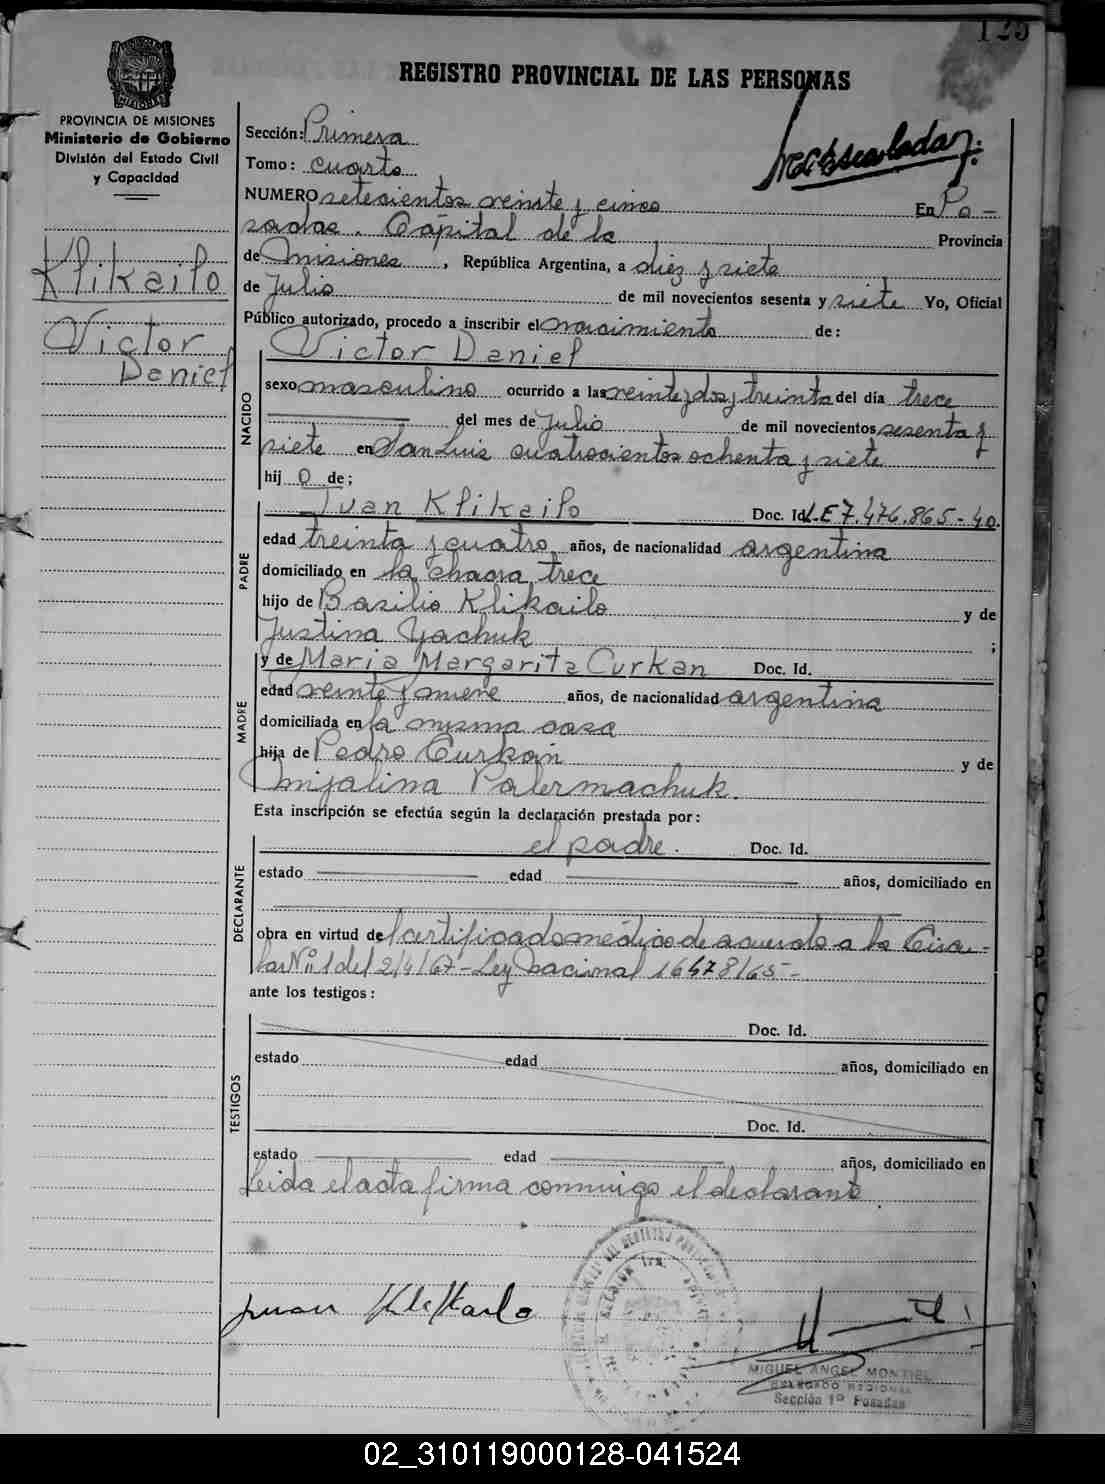 125
REGISTRO PROVINCIAL DE LAS PERSONAS
PROVINCIA DE MISIONES
Ministerio de Gobierno
División del Estado Civil
y Capacidad
Klikailo
Victor
Daniel
Sección: Primera
Tomo: cuarto
NUMERO setecientos veinte y cinco En Po-
sadas. Capital de la Provincia
de Misiones, República Argentina, a diez y siete
de Julio de mil novecientos sesenta y siete Yo, Oficial
Público autorizado, procedo a inscribir el nacimiento de:
Victor Daniel
NACIDO
sexo masculino ocurrido a las veinte y dos y treinta del día trece
del mes de Julio de mil novecientos sesenta y
siete en San Luis cuatrocientos ochenta y siete
hij o de;
PADRE
Juan Klikailo Doc. Id. L.E 7.476.865-40.
edad treinta y cuatro años, de nacionalidad argentina
domiciliado en la chacra trece
hijo de Basilio Klikailo y de
Justina Yachuk ;
MADRE
y de Maria Margarita Curkan Doc. Id.
edad veinte y nueve años, de nacionalidad argentina
domiciliada en la misma casa
hija de Pedro Curkan y de
Mijalina Palermachuk.
Esta inscripción se efectúa según la declaración prestada por:
DECLARANTE
el padre. Doc. Id.
estado edad años, domiciliado en
obra en virtud del certificado médico de acuerdo a la Circu-
lar Nº 1 del 2/4/67-Ley Nacional 16478/65-
ante los testigos:
TESTIGOS
Doc. Id.
estado edad años, domiciliado en
Doc. Id.
estado edad años, domiciliado en
Leida el acta firma conmigo el declarante
Juan Klikailo
MIGUEL ANGEL MONTIEL
DELEGADO REGIONAL
Sección 1ª Posadas
02_310119000128-041524